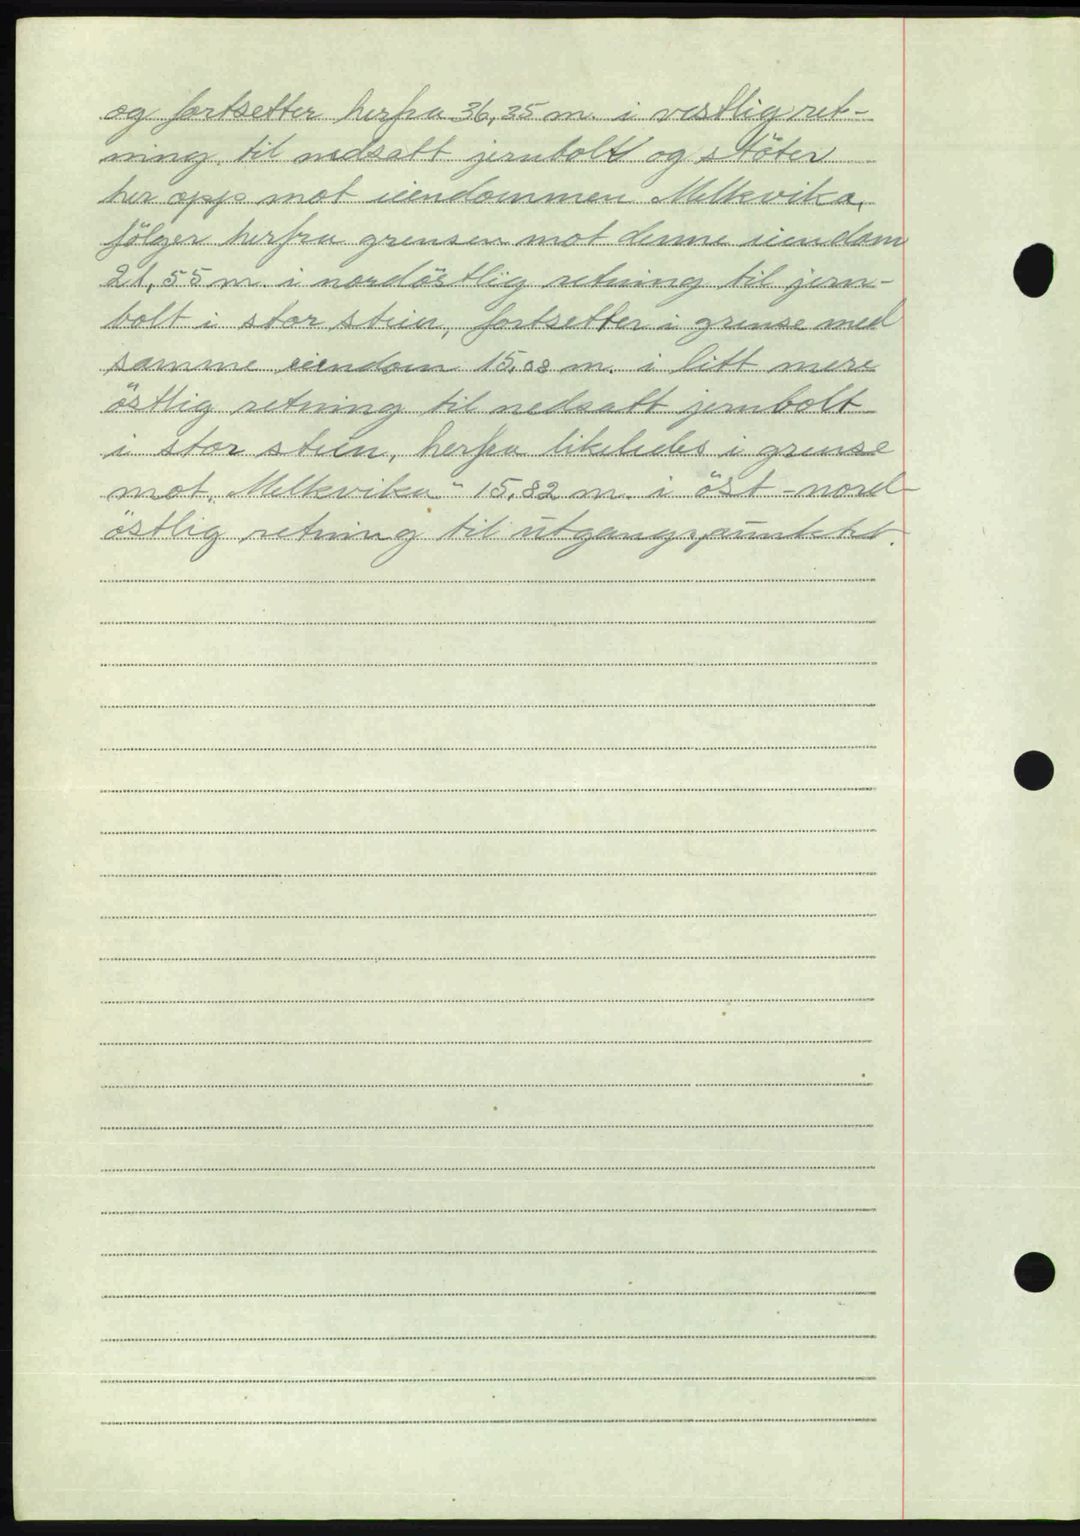 og fortsetter herfra 36,35 m. i vestlig ret-
ning til nedsatt jernbolt og stöter
her opp mot eiendommen Melkvika,
fölger herfra grensen mot denne eiendom
21,55 m. i nordöstlig retning til jern-
bolt i stor steien, fortsetter i grense med
samme eiendom 15,08 m. i litt mere
östlig retning til nedsatt jernbolt
i stor steien, herfra likeledes i grense
mot „Melkvika" 15,82 m. i öst-nord-
östlig retning til utgangspunktet.